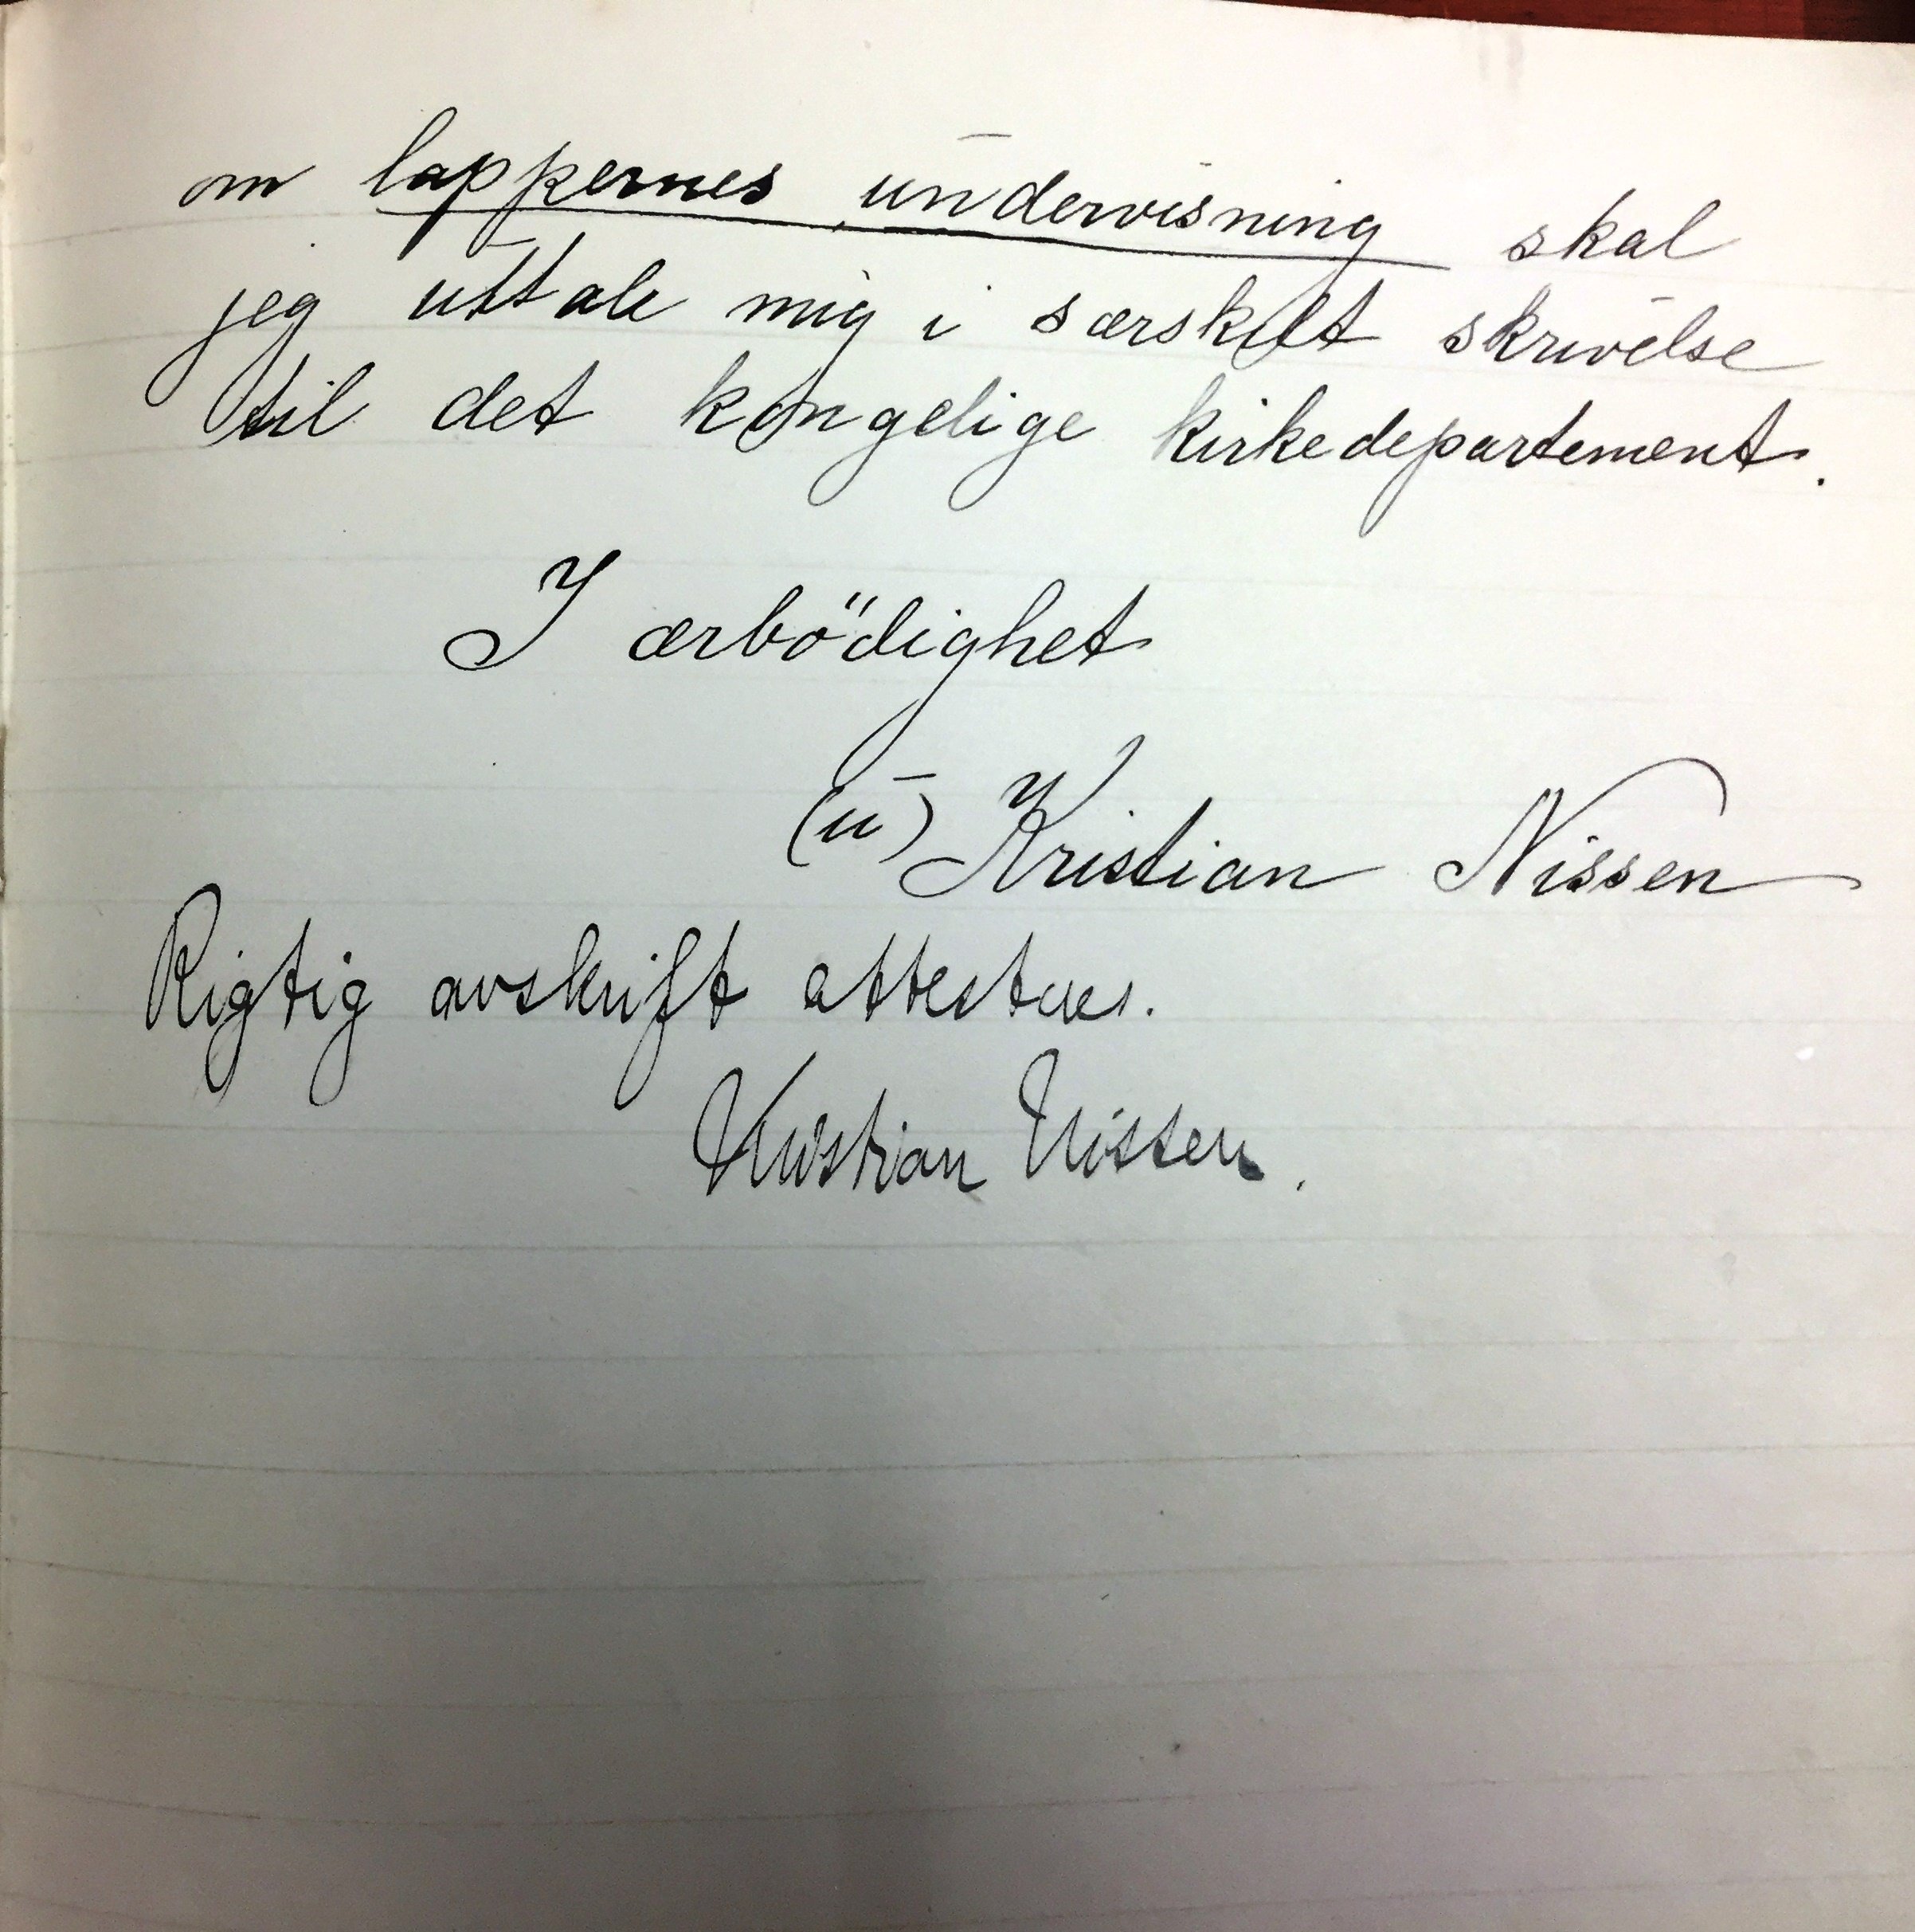 om lappernes undervisning skal
jeg uttale mig i særskilt skrivelse
til det kongelige kirkedepartement.
I ærbödighet
(u) Kristian Nissen
Rigtig avskrift attesteres.
Kristian Nissen.